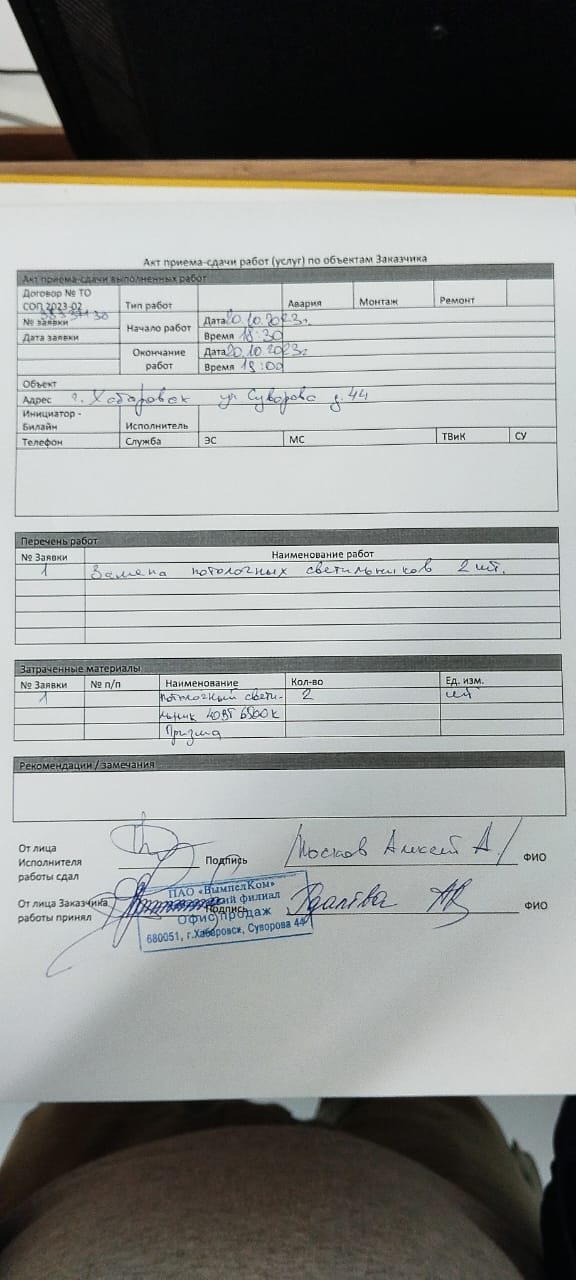 Акт приема-сдачи работ (услуг) по объектам Заказчика
Акт приема-сдачи выполненных работ
Договор № ТО
СОП 2023-02
Тип работ
Авария
Монтаж
Ремонт
№ заявки
Начало работ
Дата 20.10.2023г.
Дата заявки
Время 18:30
Окончание работ
Дата 20.10.2023г
Время 19:00
Объект
Адрес г. Хабаровск ул Суворова д. 44
Инициатор - Билайн
Исполнитель
Телефон
Служба
ЭС
МС
ТВиК
СУ
Перечень работ
№ Заявки Наименование работ
1 Замена потолочных светильников 2 шт.
Затраченные материалы
№ Заявки № п/п Наименование Кол-во Ед. изм.
1 потолочный свети- 2 шт
льник 40Вт 6500к
Призма
Рекомендации / замечания
От лица
Исполнителя
работы сдал
Подпись
Алексей А
ФИО
От лица Заказчика
работы принял
Подпись
ФИО
ПАО «ВымпелКом»
филиал
Офис продаж
680051, г.Хабаровск, Суворова 44